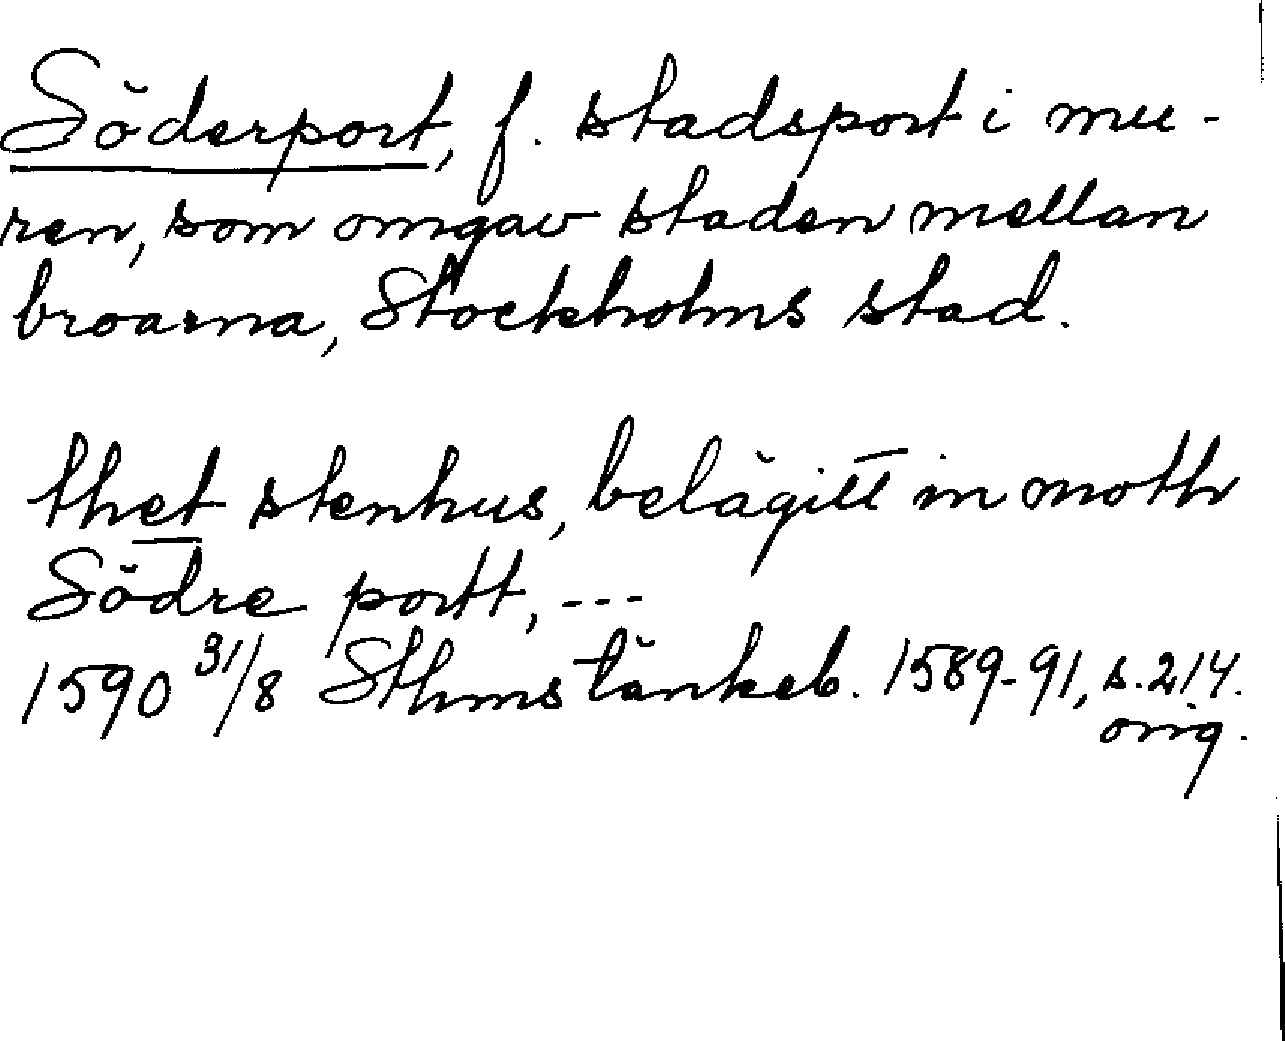 Söderport, f. stadsport i mu-
ren, som omgav staden mellan
broarna, Stockholms stad.
thet stenhus, belägitt in moth
Södre portt, ---
1590 31/8 Sthms tänkeb. 1589-91, s. 214.
orig.